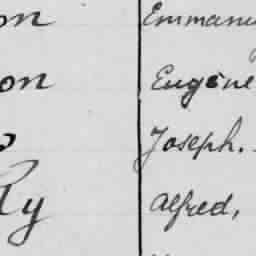 on Emmanu
on Eugène
Joseph.
Ry Alfred,